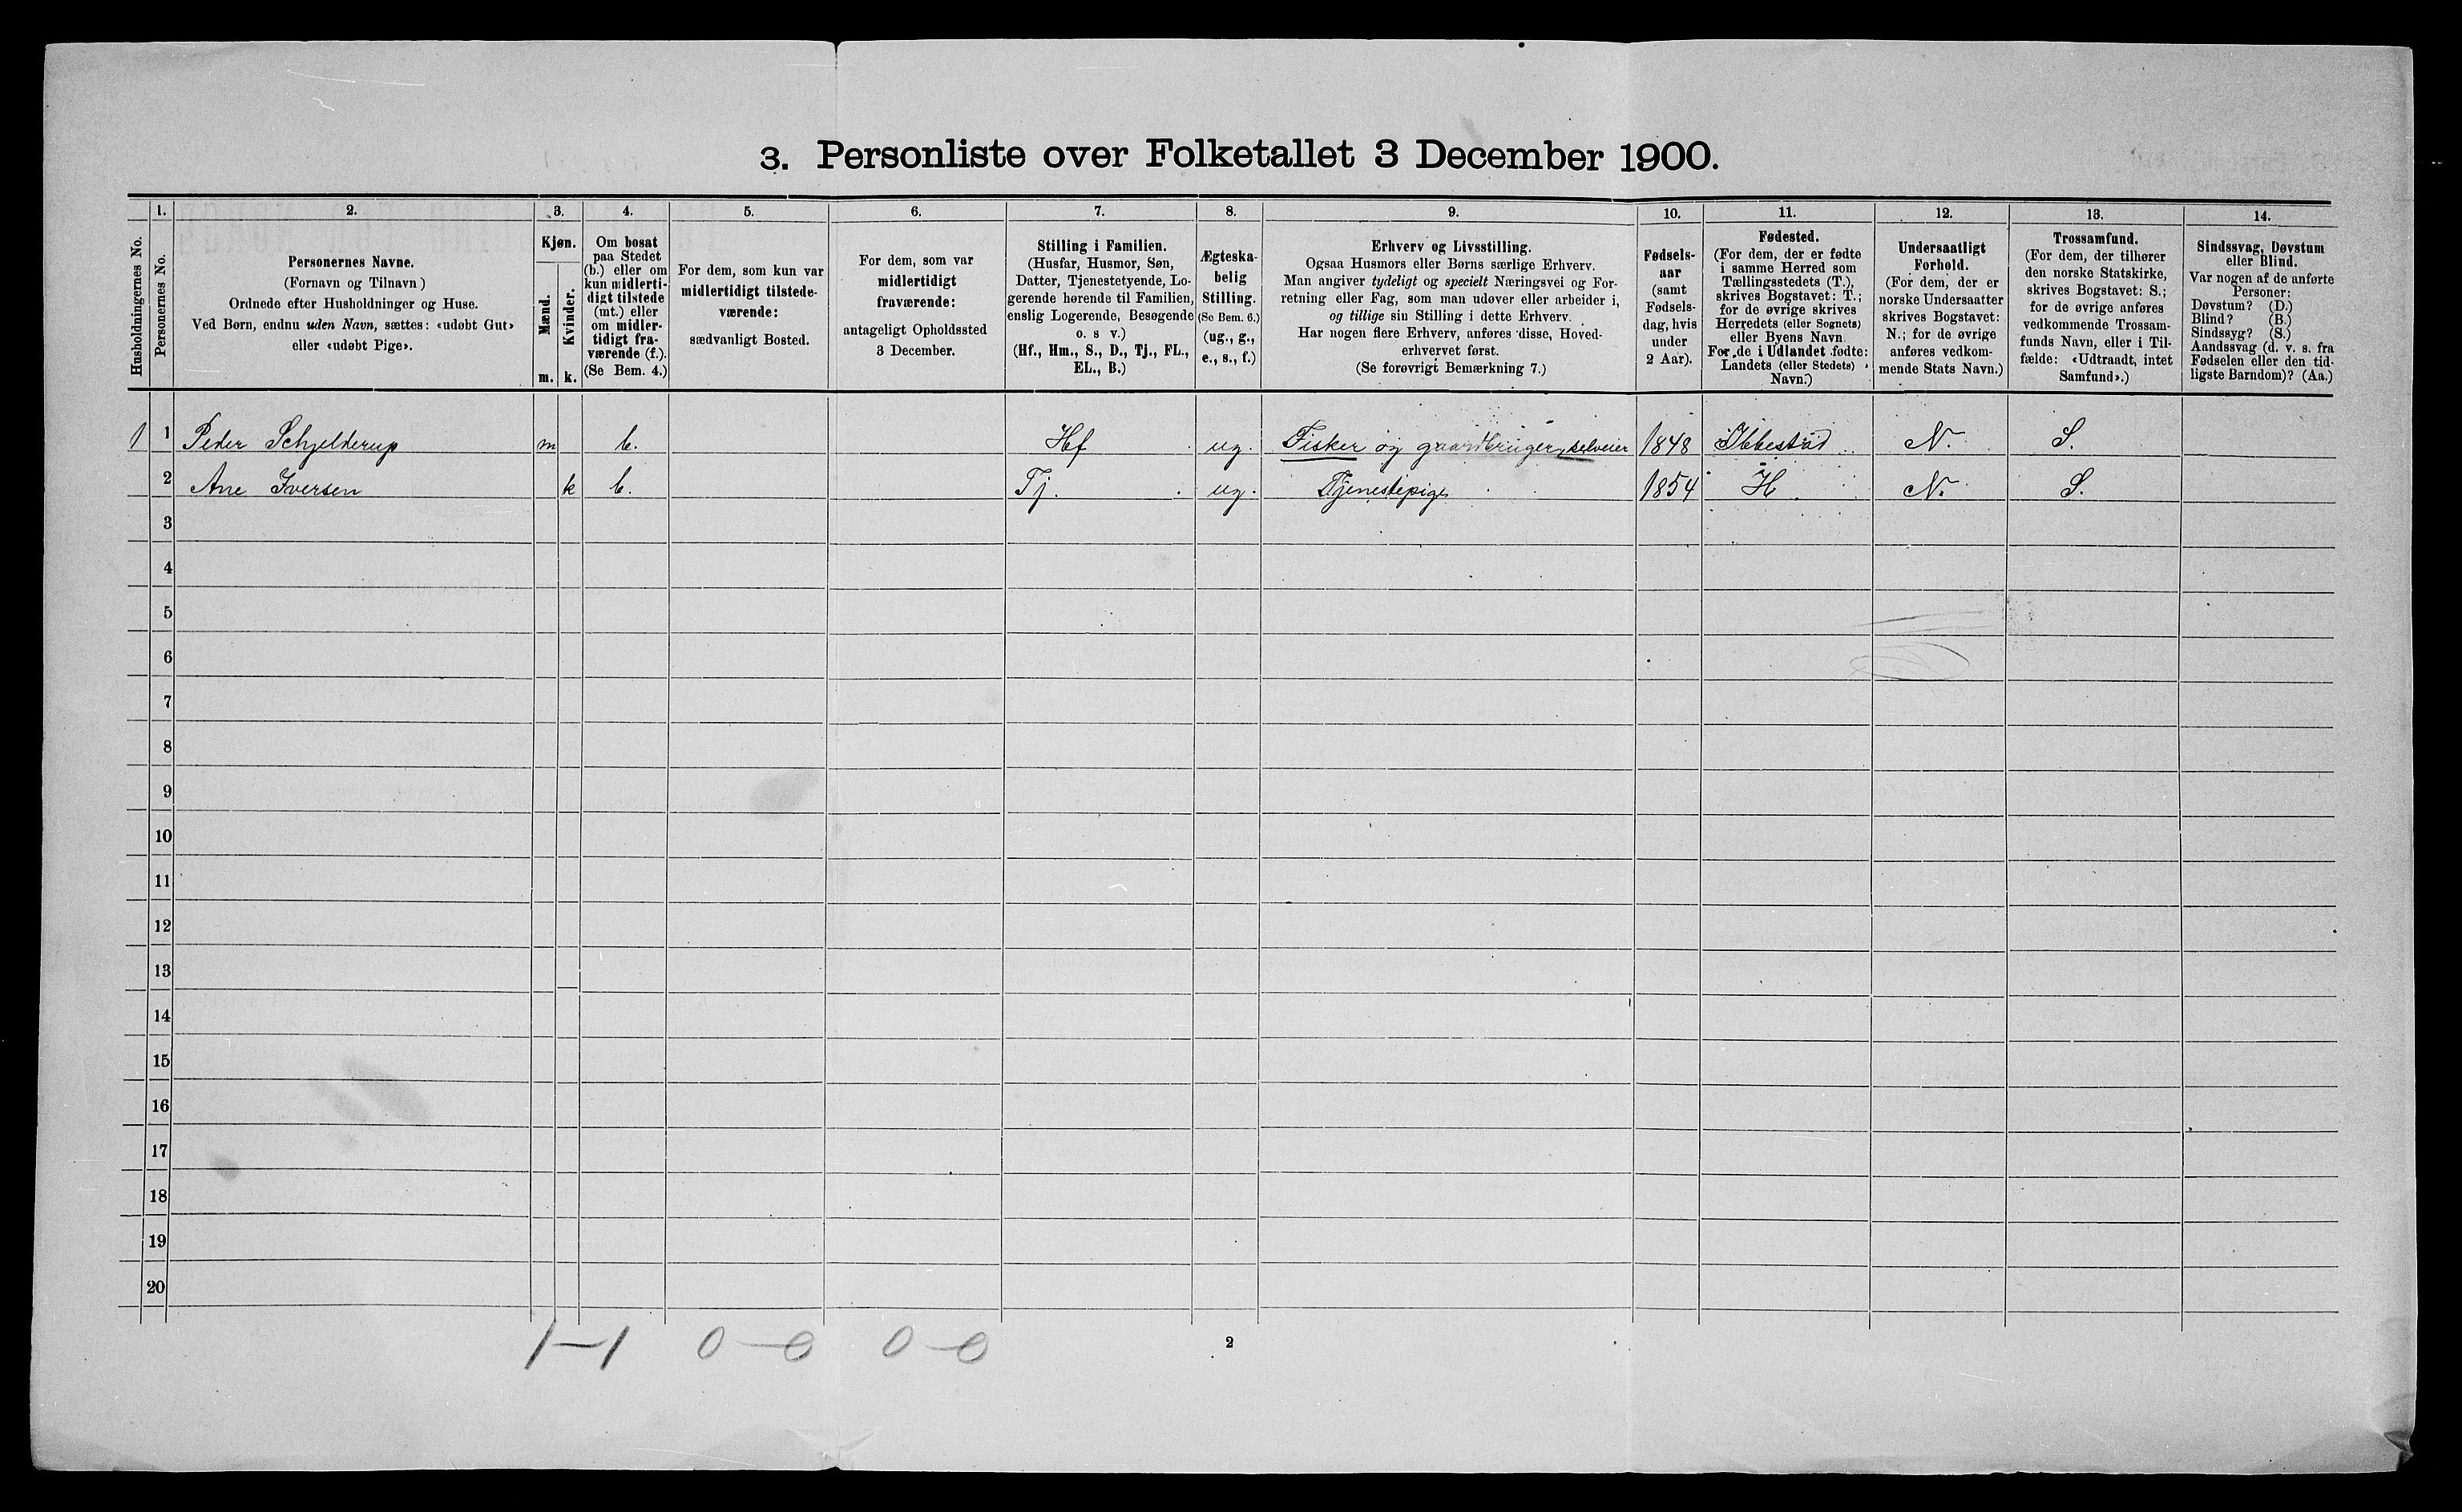 3. Personliste over Folketallet 3 December 1900.
1. 2. 3. 4. 5. 6. 7. 8. 9. 10. 11. 12. 13. 14.
Husholdningernes No.
Personernes No.
Personernes Navne.
(Fornavn og Tilnavn)
Ordnede efter Husholdninger og Huse.
Ved Børn, endnu uden Navn, sættes: «udøbt Gut»
eller «udøbt Pige».
Kjøn.
Mænd.
Kvinder.
m. k.
Om bosat
paa Stedet
(b.) eller om
kun midlerti-
digt tilstede
(mt.) eller
om midler-
tidigt fra-
værende (f.).
(Se Bem. 4.)
For dem, som kun var
midlertidigt tilstede-
værende:
sædvanligt Bosted.
For dem, som var
midlertidigt
fraværende:
antageligt Opholdssted
3 December.
Stilling i Familien.
(Husfar, Husmor, Søn,
Datter, Tjenestetyende, Lo-
gerende hørende til Familien,
enslig Logerende, Besøgende
o. s v.)
(Hf., Hm., S., D., Tj., FL.,
EL., B.)
Ægteska-
belig
Stilling.
(Se Bem. 6.)
(ug., g.,
e., s., f.)
Erhverv og Livsstilling.
Ogsaa Husmors eller Børns særlige Erhverv.
Man angiver tydeligt og specielt Næringsvei og For-
retning eller Fag, som man udøver eller arbeider i,
og tillige sin Stilling i dette Erhverv.
Har nogen flere Erhverv, anføres disse, Hoved-
erhvervet først.
(Se forøvrigt Bemærkning 7.)
Fødsels-
aar
(samt
Fødsels-
dag, hvis
under
2 Aar).
Fødested.
(For dem, der er fødte
i samme Herred som
Tællingsstedets (T.),
skrives Bogstavet: T.;
for de øvrige skrives
Herredets (eller Sognets)
eller Byens Navn.
For de i Udlandet fødte:
Landets (eller Stedets)
Navn.)
Undersaatligt
Forhold.
(For dem, der er
norske Undersaatter
skrives Bogstavet:
N.; for de øvrige
anføres vedkom-
mende Stats Navn.)
Trossamfund.
(For dem, der tilhører
den norske Statskirke,
skrives Bogstavet: S.;
for de øvrige anføres
vedkommende Trossam-
funds Navn, eller i Til-
fælde: «Udtraadt, intet
Samfund».)
Sindssvag, Døvstum
eller Blind.
Var nogen af de anførte
Personer:
Døvstum? (D.)
Blind? (B.)
Sindssyg? (S.)
Aandssvag (d. v. s. fra
Fødselen eller den tid-
ligste Barndom)? (Aa.)
1 1 Peder Schjelderup m b. Hf ug. Fisker og gaardbruger, selveier 1848 Ibbestad N. S.
2 Ane Iversen k b. Tj. ug. Tjenestepige 1854 H N. S.
3
4
5
6
7
8
9
10
11
12
13
14
15
16
17
18
19
20
1-1 0-0 0-0
2